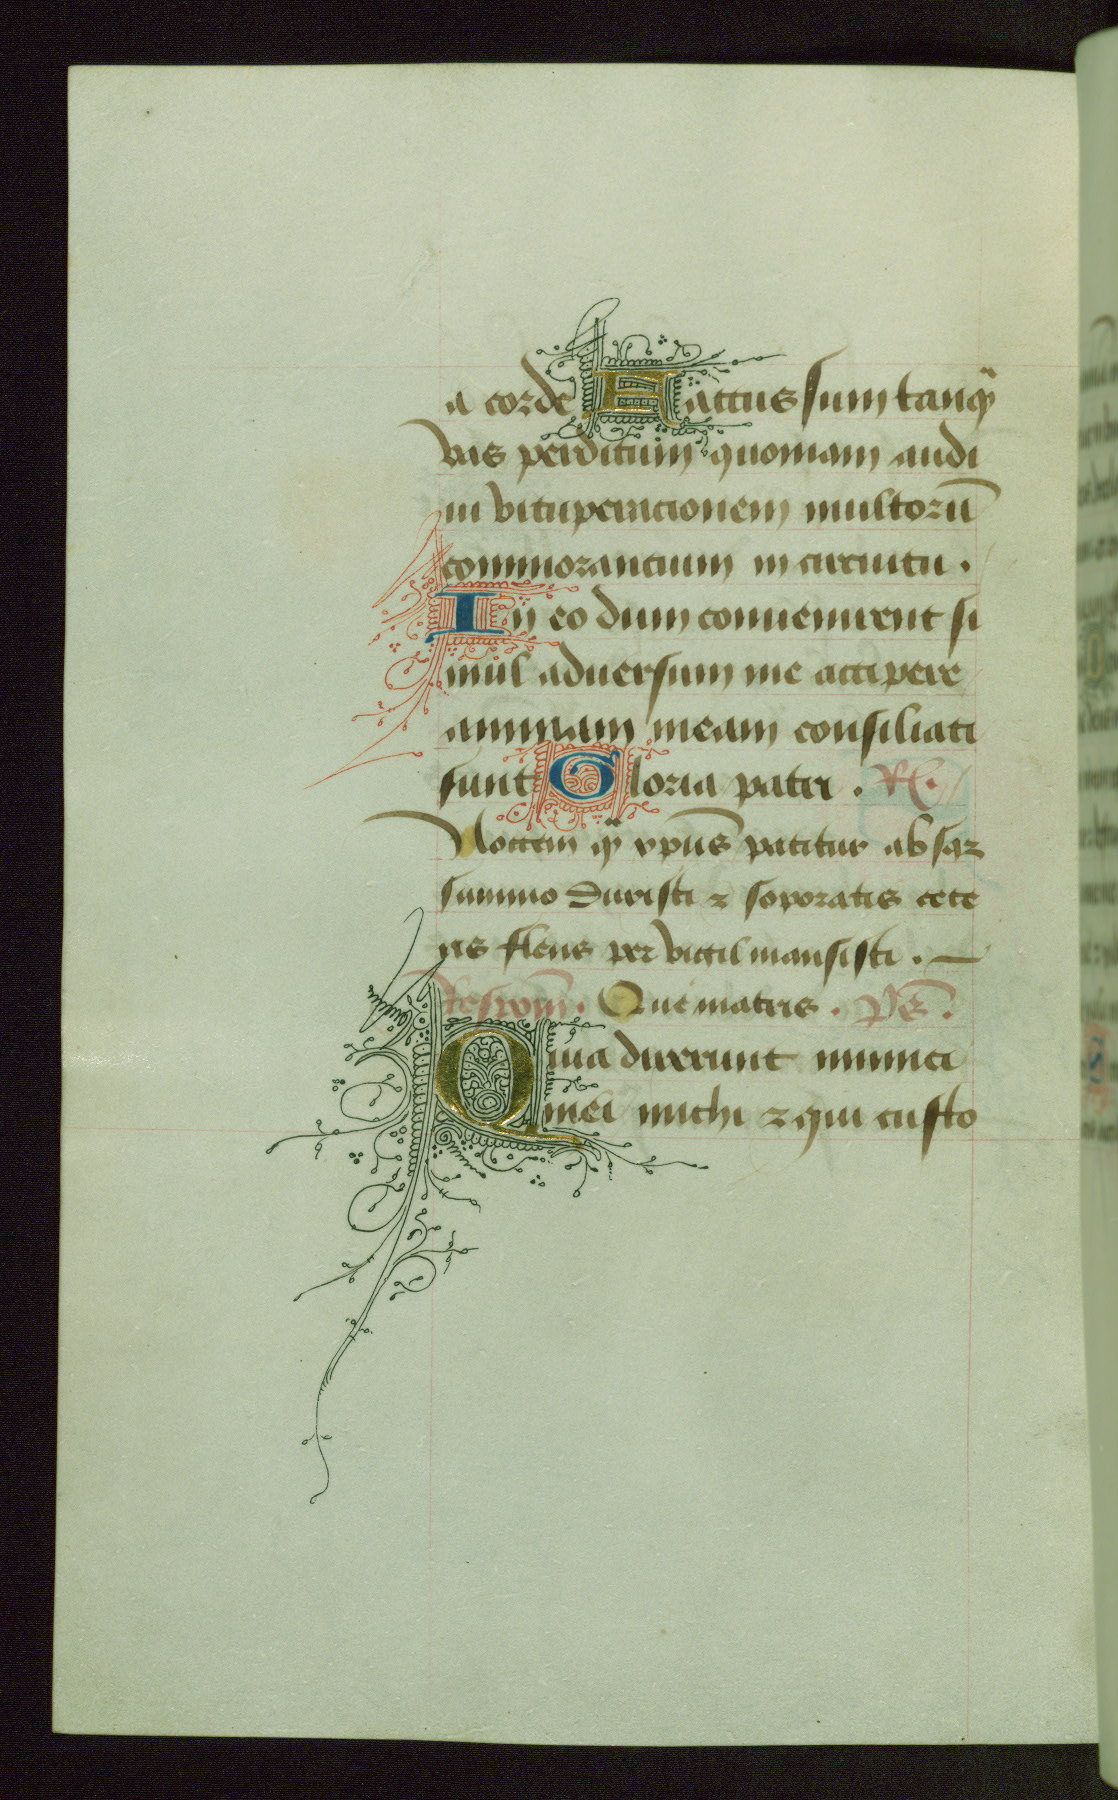 a corde Factus sum tanq̃
vas perditum quoniam audi
ui vituperacionem multorũ
commorancium in circuitu .
In eo dum conuenirent si
mul aduersum me accipere
animam meam consiliati
sunt Gloria patri . R.
Noctem q̃ xpus patitur ab
summo duxisti ⁊ soporatis cete
ris flens per vigil mansisti .
Respom̃ . Que matris . Ps̃ .
Quia dixerunt inimici
mei michi ⁊ qui custo